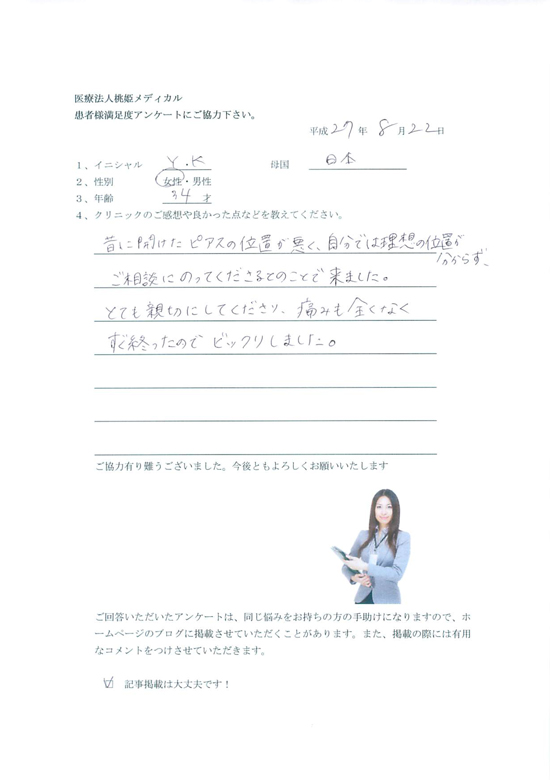 医療法人桃姫メディカル
患者様満足度アンケートにご協力下さい。
平成27年 8月22日
1、イニシャル Y.K 母国 日本
2、性別 女性・男性
3、年齢 34才
4、クリニックのご感想や良かった点などを教えてください。
昔に開けたピアスの位置が悪く、自分では理想の位置が
分からず、
ご相談にのってくださるとのことで来ました。
とても親切にしてくださり、痛みも全くなく
すぐ終ったのでビックリしました。
ご協力有り難うございました。今後ともよろしくお願いいたします
ご回答いただいたアンケートは、同じ悩みをお持ちの方の手助けになりますので、ホ
ームページのブログに掲載させていただくことがあります。また、掲載の際には有用
なコメントをつけさせていただきます。
☑ 記事掲載は大丈夫です！